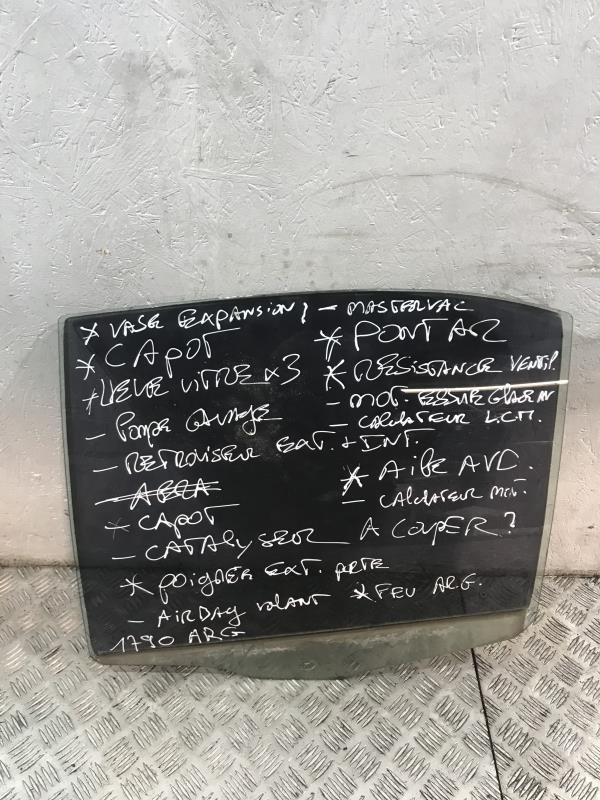 * VASE EXPANSION !
* CAPOT
+ LÈVE VITRE x3
- POMPE LAVAGE
- RETROVISEUR EXT. + INT.
- ABCA
* CAPOT
- CATALYSEUR A COUPER ?
* POIGNER EXT. PORTE
- AIRBAG VOLANT
1790 ARG
- MASTERVAC
* PONT AR
* RÉSISTANCE VENTIL.
- MOT. ESSUIE GLACE AV
- CALCULATEUR L.C.M.
* AILE AVD.
- CALCULATEUR MOT.
* FEU ARG.